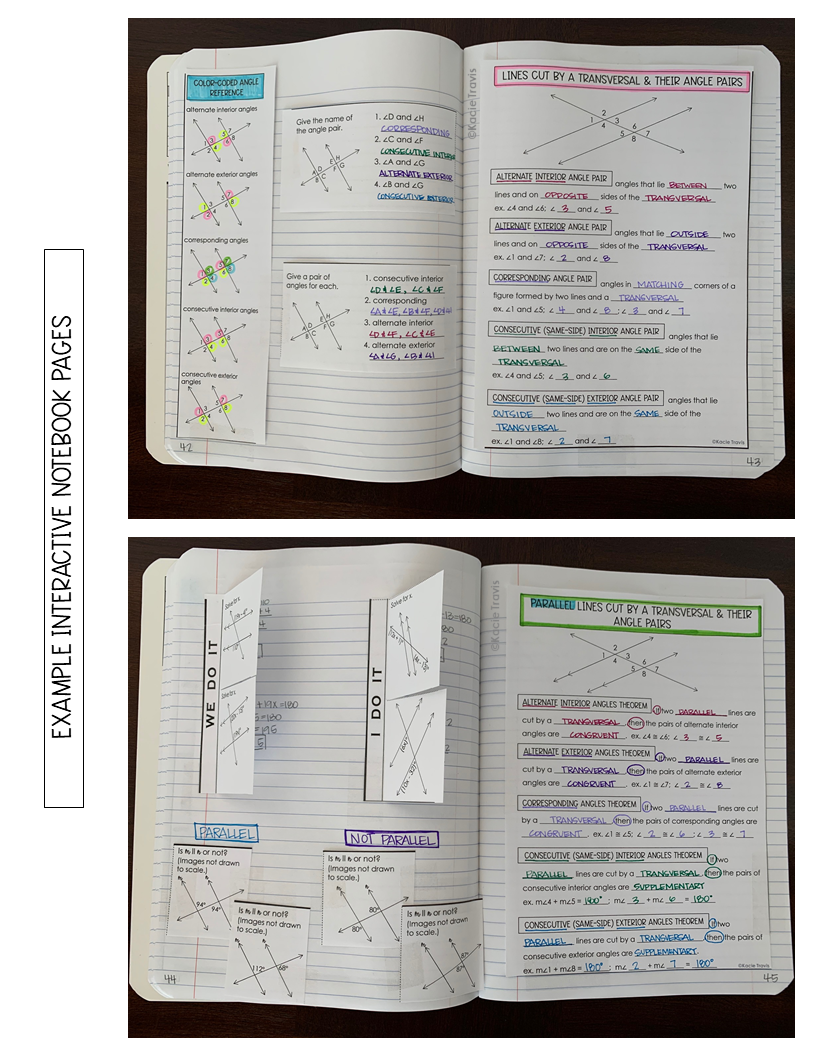 EXAMPLE INTERACTIVE NOTEBOOK PAGES
COLOR-CODED ANGLE
REFERENCE
alternate interior angles
alternate exterior angles
corresponding angles
consecutive interior angles
consecutive exterior
angles
42
Give the name of
the angle pair.
1. ∠D and ∠H
CORRESPONDING
2. ∠C and ∠F
CONSECUTIVE INTERIOR
3. ∠A and ∠G
ALTERNATE EXTERIOR
4. ∠B and ∠G
CONSECUTIVE EXTERIOR
Give a pair of
angles for each.
1. consecutive interior
∠D & ∠E, ∠C & ∠F
2. corresponding
∠A & ∠E, ∠B & ∠F,
3. alternate interior
∠D & ∠F, ∠C & ∠E
4. alternate exterior
∠A & ∠G, ∠B & ∠H
©Kacie Travis
LINES CUT BY A TRANSVERSAL & THEIR ANGLE PAIRS
1 2 3 4 5 6 7 8
ALTERNATE INTERIOR ANGLE PAIR angles that lie BETWEEN two
lines and on OPPOSITE sides of the TRANSVERSAL
ex. ∠4 and ∠6; ∠ 3 and ∠ 5
ALTERNATE EXTERIOR ANGLE PAIR angles that lie OUTSIDE two
lines and on OPPOSITE sides of the TRANSVERSAL
ex. ∠1 and ∠7; ∠ 2 and ∠ 8
CORRESPONDING ANGLE PAIR angles in MATCHING corners of a
figure formed by two lines and a TRANSVERSAL
ex. ∠1 and ∠5; ∠ 4 and ∠ 8 ; ∠ 3 and ∠ 7
CONSECUTIVE (SAME-SIDE) INTERIOR ANGLE PAIR angles that lie
BETWEEN two lines and are on the SAME side of the
TRANSVERSAL
ex. ∠4 and ∠5; ∠ 3 and ∠ 6
CONSECUTIVE (SAME-SIDE) EXTERIOR ANGLE PAIR angles that lie
OUTSIDE two lines and are on the SAME side of the
TRANSVERSAL
ex. ∠1 and ∠8; ∠ 2 and ∠ 7
©Kacie Travis
43
WE DO IT
Solve for x
Solve for x
+ 19x = 180
= 180
= 195
I DO IT
Solve for x
-13=180
PARALLEL
NOT PARALLEL
Is m ll n or not?
(Images not drawn
to scale.)
94° 94°
Is m ll n or not?
(Images not drawn
to scale.)
112° 68°
Is m ll n or not?
(Images not drawn
to scale.)
80°
80°
Is m ll n or not?
(Images not drawn
to scale.)
44
©Kacie Travis
PARALLEL LINES CUT BY A TRANSVERSAL & THEIR
ANGLE PAIRS
1 2 3 4 5 6 7 8
ALTERNATE INTERIOR ANGLES THEOREM If two PARALLEL lines are
cut by a TRANSVERSAL then the pairs of alternate interior
angles are CONGRUENT. ex. ∠4 ≅ ∠6; ∠ 3 ≅ ∠ 5
ALTERNATE EXTERIOR ANGLES THEOREM If two PARALLEL lines are
cut by a TRANSVERSAL then the pairs of alternate exterior
angles are CONGRUENT. ex. ∠1 ≅ ∠7; ∠ 2 ≅ ∠ 8
CORRESPONDING ANGLES THEOREM If two PARALLEL lines are cut
by a TRANSVERSAL then the pairs of corresponding are
CONGRUENT. ex. ∠1 ≅ ∠5; ∠ 2 ≅ ∠ 6 ; ∠ 3 ≅ ∠ 7
CONSECUTIVE (SAME-SIDE) INTERIOR ANGLES THEOREM If two
PARALLEL lines are cut by a TRANSVERSAL, then the pairs of
consecutive interior angles are SUPPLEMENTARY
ex. m∠4 + m∠5 = 180° ; m∠ 3 + m∠ 6 = 180°
CONSECUTIVE (SAME-SIDE) EXTERIOR ANGLES THEOREM If two
PARALLEL lines are cut by a TRANSVERSAL then the pairs of
consecutive exterior angles are SUPPLEMENTARY.
ex. m∠1 + m∠8 = 180° ; m∠ 2 + m∠ 7 = 180°
©Kacie Travis
45